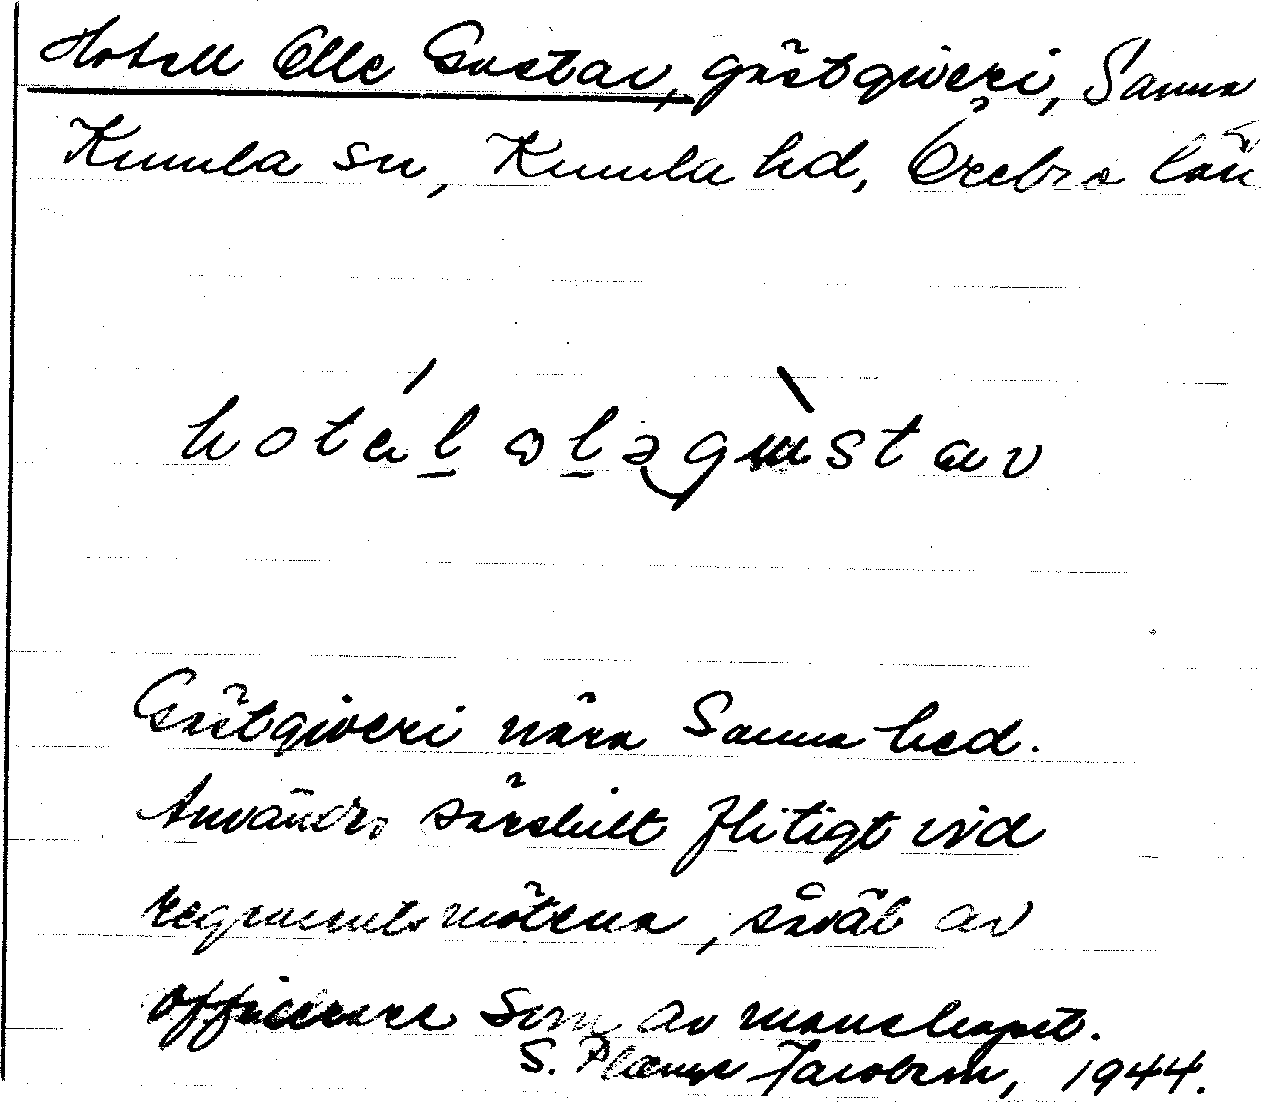 Hotell Olle Gustav, gästgiveri, Sanna
Kumla sn, Kumla hd, Örebro län
hotál ɷləgùstav
Gästgiveri nära Sanna hed.
Användes särskilt flitigt vid
regementsmötena, såväl av
officerare som av manskapet.
S. Jacobson, 1944.